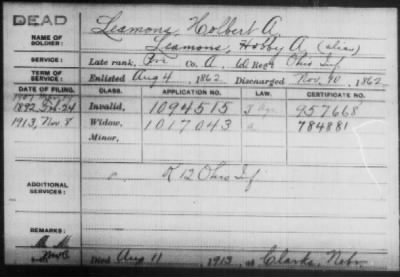 DEAD
NAME OF SOLDIER:
Leamons, Holbert A.
Leamons, Hobby A. (alias)
SERVICE:
Late rank, Co. A, Reg't Ohio Inf
TERM OF SERVICE:
Enlisted Aug 4, 1862 Discharged Nov, 1862
DATE OF FILING. CLASS. APPLICATION NO. LAW. CERTIFICATE NO.
1892 24 Invalid, 1094515 957668
1913, Nov 8 Widow, 1017043 784881
Minor,
ADDITIONAL SERVICES:
K 12 Ohio Inf
REMARKS:
Died Aug 11, 1913, at Clarks, Nebr.